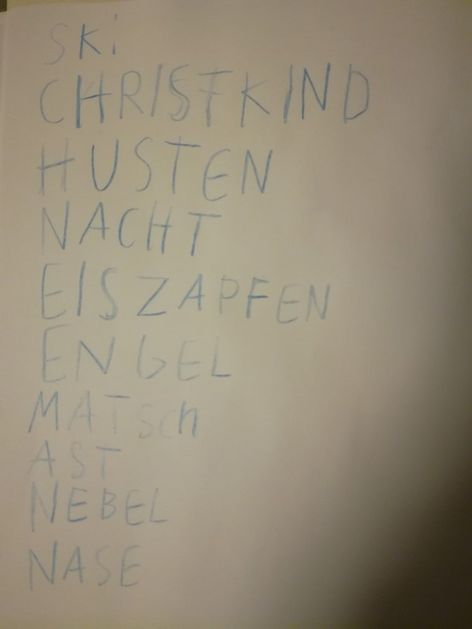 Ski
CHRISTKIND
HUSTEN
NACHT
EISZAPFEN
ENGEL
MATSch
AST
NEBEL
NASE